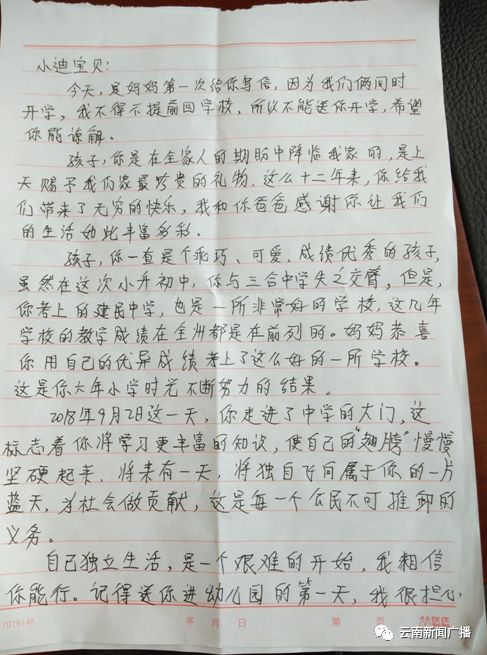 小迪宝贝：
今天，是妈妈第一次给你写信，因为我们俩同时
开学，我不得不提前回学校，所以不能送你开学，希望
你能谅解。
孩子，你是在全家人的期盼中降临我家的，是上
天赐予我们家最珍贵的礼物，这么十二年来，你给我
们带来了无穷的快乐，我和你爸爸感谢你让我们
的生活如此丰富多彩。
孩子，你一直是个乖巧、可爱、成绩优秀的孩子，
虽然在这次小升初中，你与三合中学失之交臂，但是，
你考上的建民中学，也是一所非常好的学校，这几年
学校的教学成绩在全州都是在前列的。妈妈恭喜
你用自己的优异成绩考上了这么好的一所学校。
这是你六年小学时光不断努力的结果。
2018年9月2日这一天，你走进了中学的大门，这
标志着你将学习更丰富的知识，使自己的"翅膀"慢慢
坚硬起来，将来有一天，将独自飞向属于你的一片
蓝天，为社会做贡献，这是每一个公民不可推卸的
义务。
自己独立生活，是一个艰难的开始，我相信
你能行。记得送你进幼儿园的第一天，我很担心
7018146 年 月 日 第 页
云南新闻广播